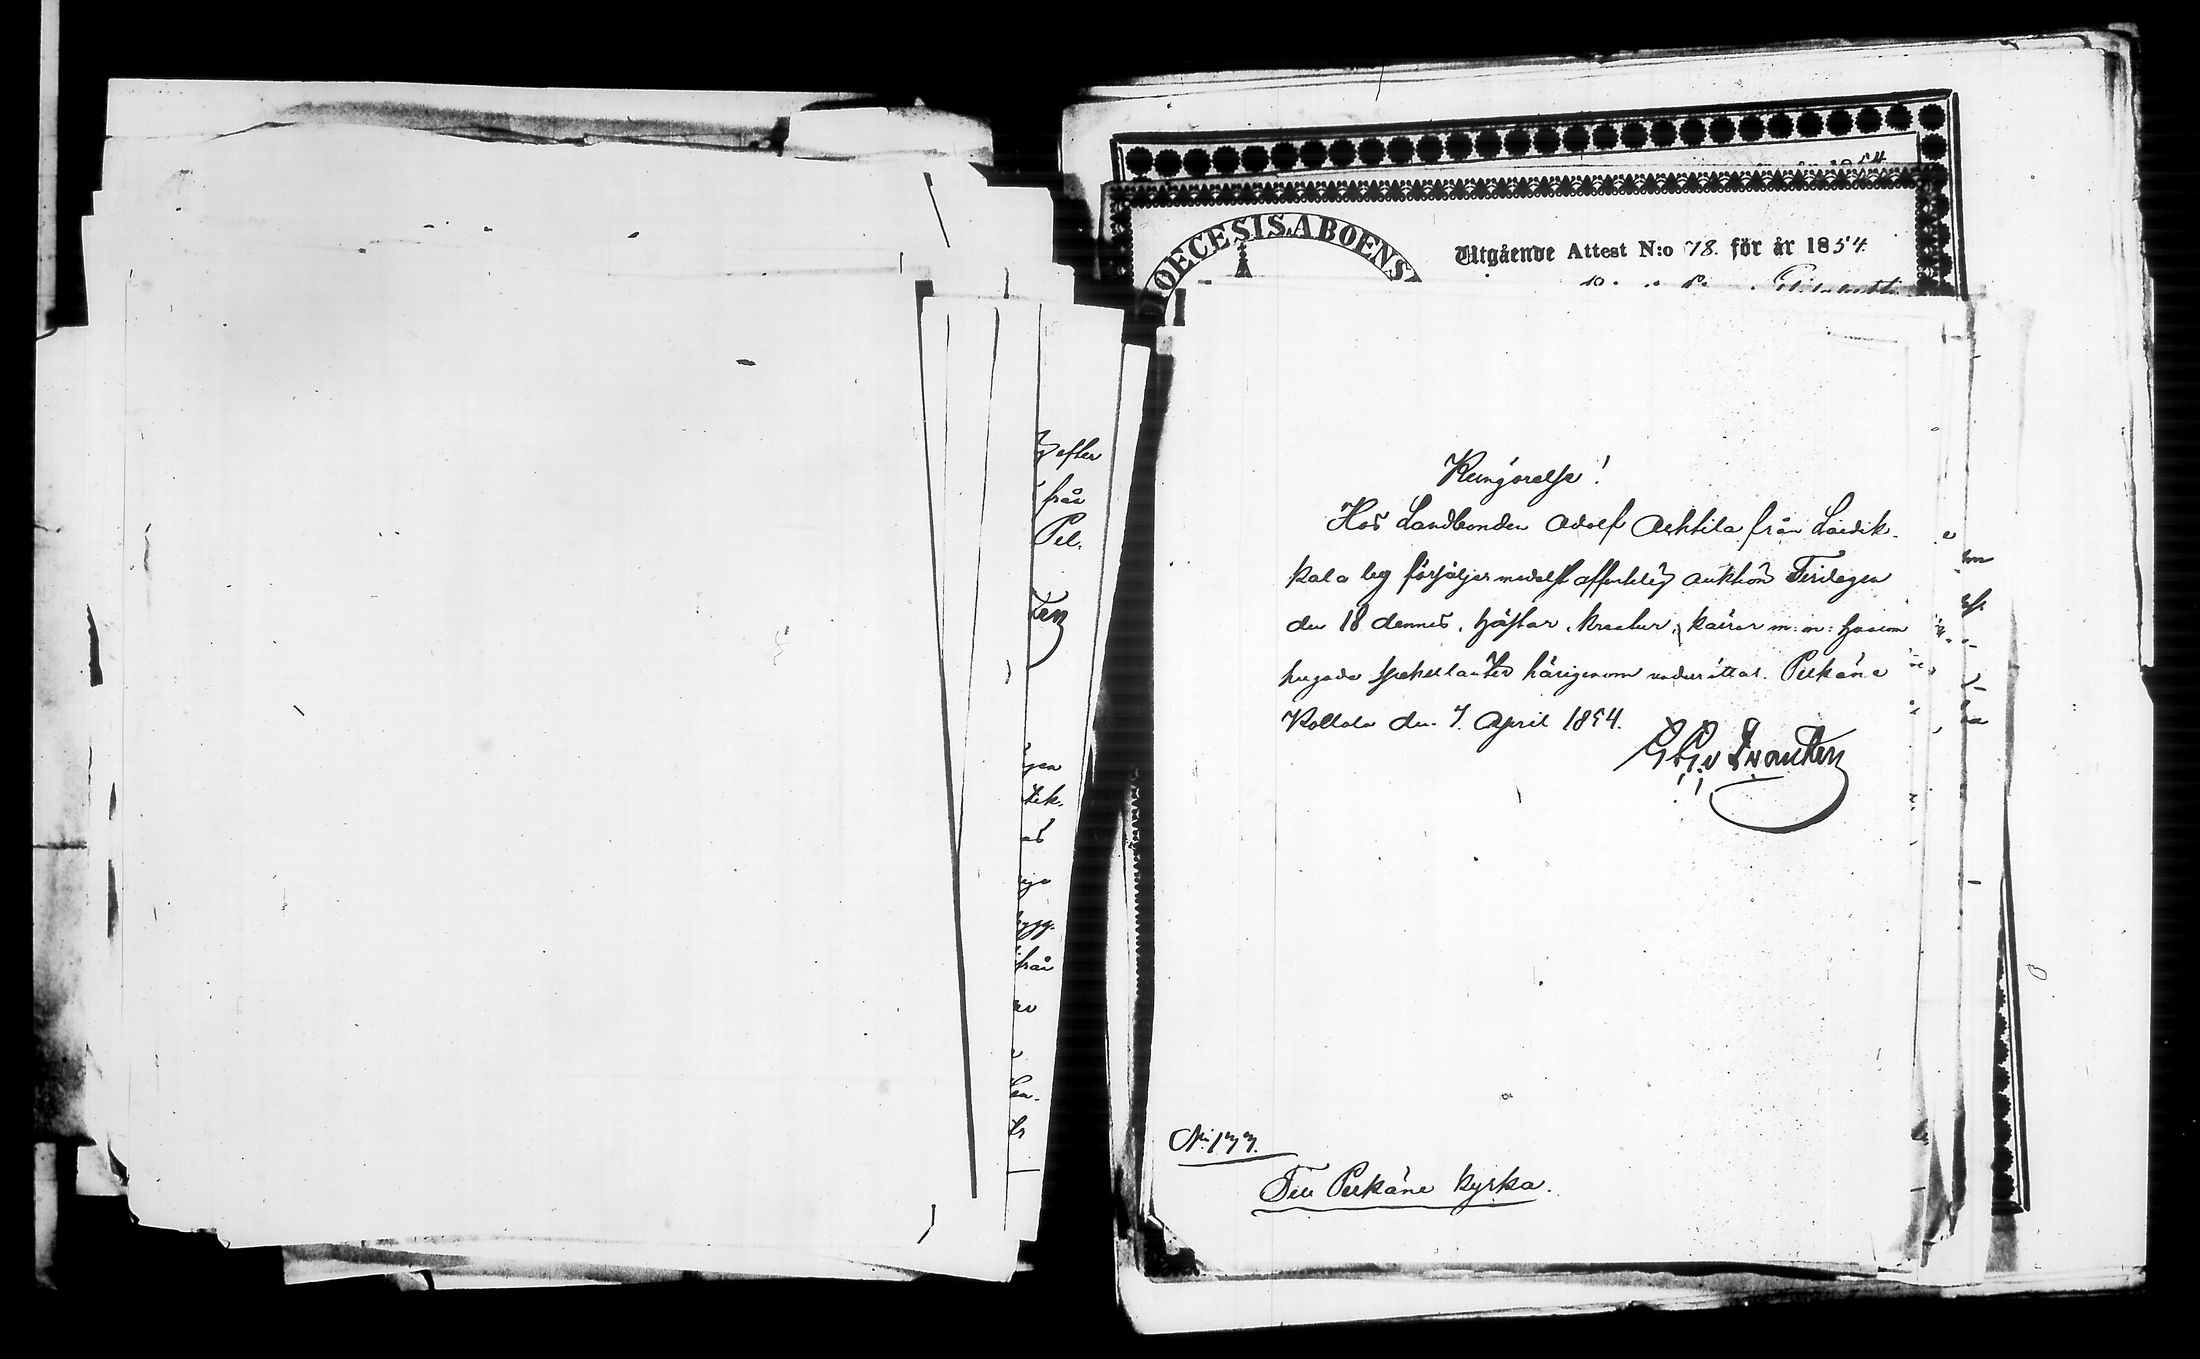 efter
från
Pel.
gen
tik.
ygg.
från
DIOECESIS ABOENS
Utgående Attest N:o 78. för år 1854.
Kungörelse!
Hos Landbonden Adolf Ahtila från Laitik-
kala by försäljes medelst offentelig auktion Tisdagen
den 18 dennes, hästar, kreatur, kärror m: m: hvarom
hugade spekulanter härigenom underrättas. Pelkäne
Kollola den 7. April 1854.
N: 177.
Till Pelkäne kyrka.